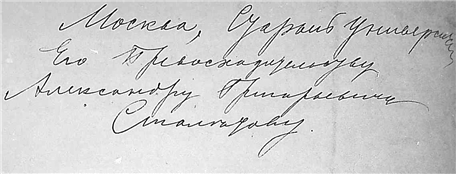 Москва, Старый Университ
Его Превосходительству
Александру Григорьевичу
Столетову.